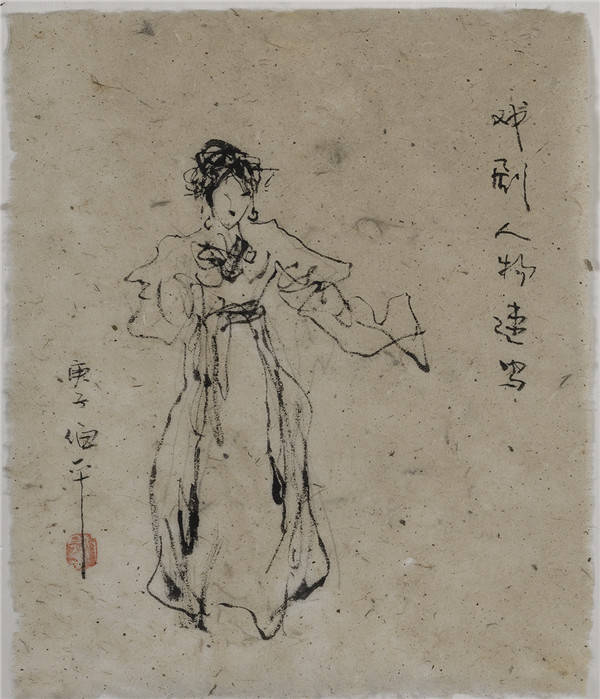 戏剧人物速写
庚子伯平